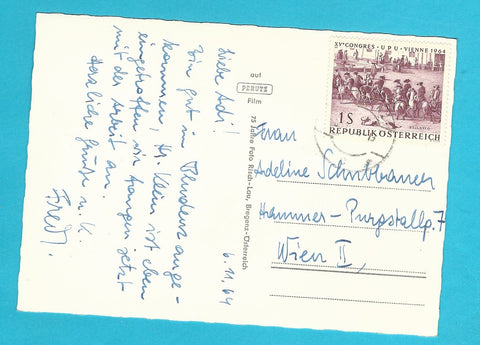 6.11.64
Liebe Adi!
Bin gut in Bludenz ange-
kommen, Hr. Klein ist eben
eingetroffen wir fangen jetzt
mit der Arbeit an.
Herzliche Grüße u. K.
Fred.
auf
PERUTZ
Film
75 Jahre Foto Risch-Lau, Bregenz-Österreich
XV. CONGRÈS · UPU · VIENNE 1964
1 S
REPUBLIK ÖSTERREICH
Frau
Adeline Schubbauer
Hammer-Purgstallg. 7
Wien II,